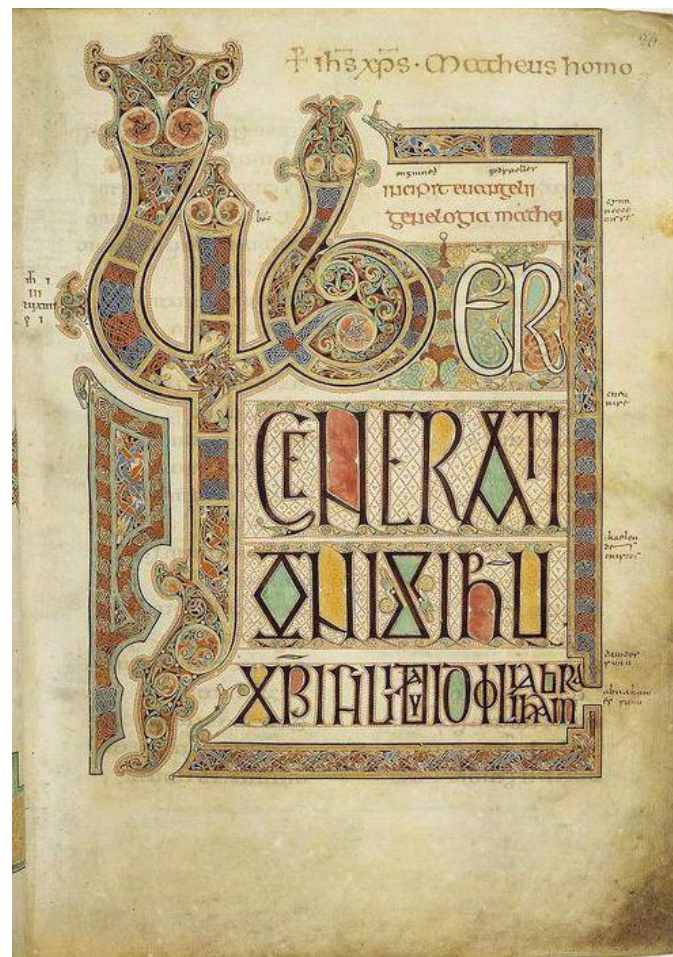 + ihs xps · Matheus homo
incipit euangelii
genelogia mathei
boc
LIBER
GENERATI
ONIS IHU
XPI FILII DAVID FILII ABRAHAM